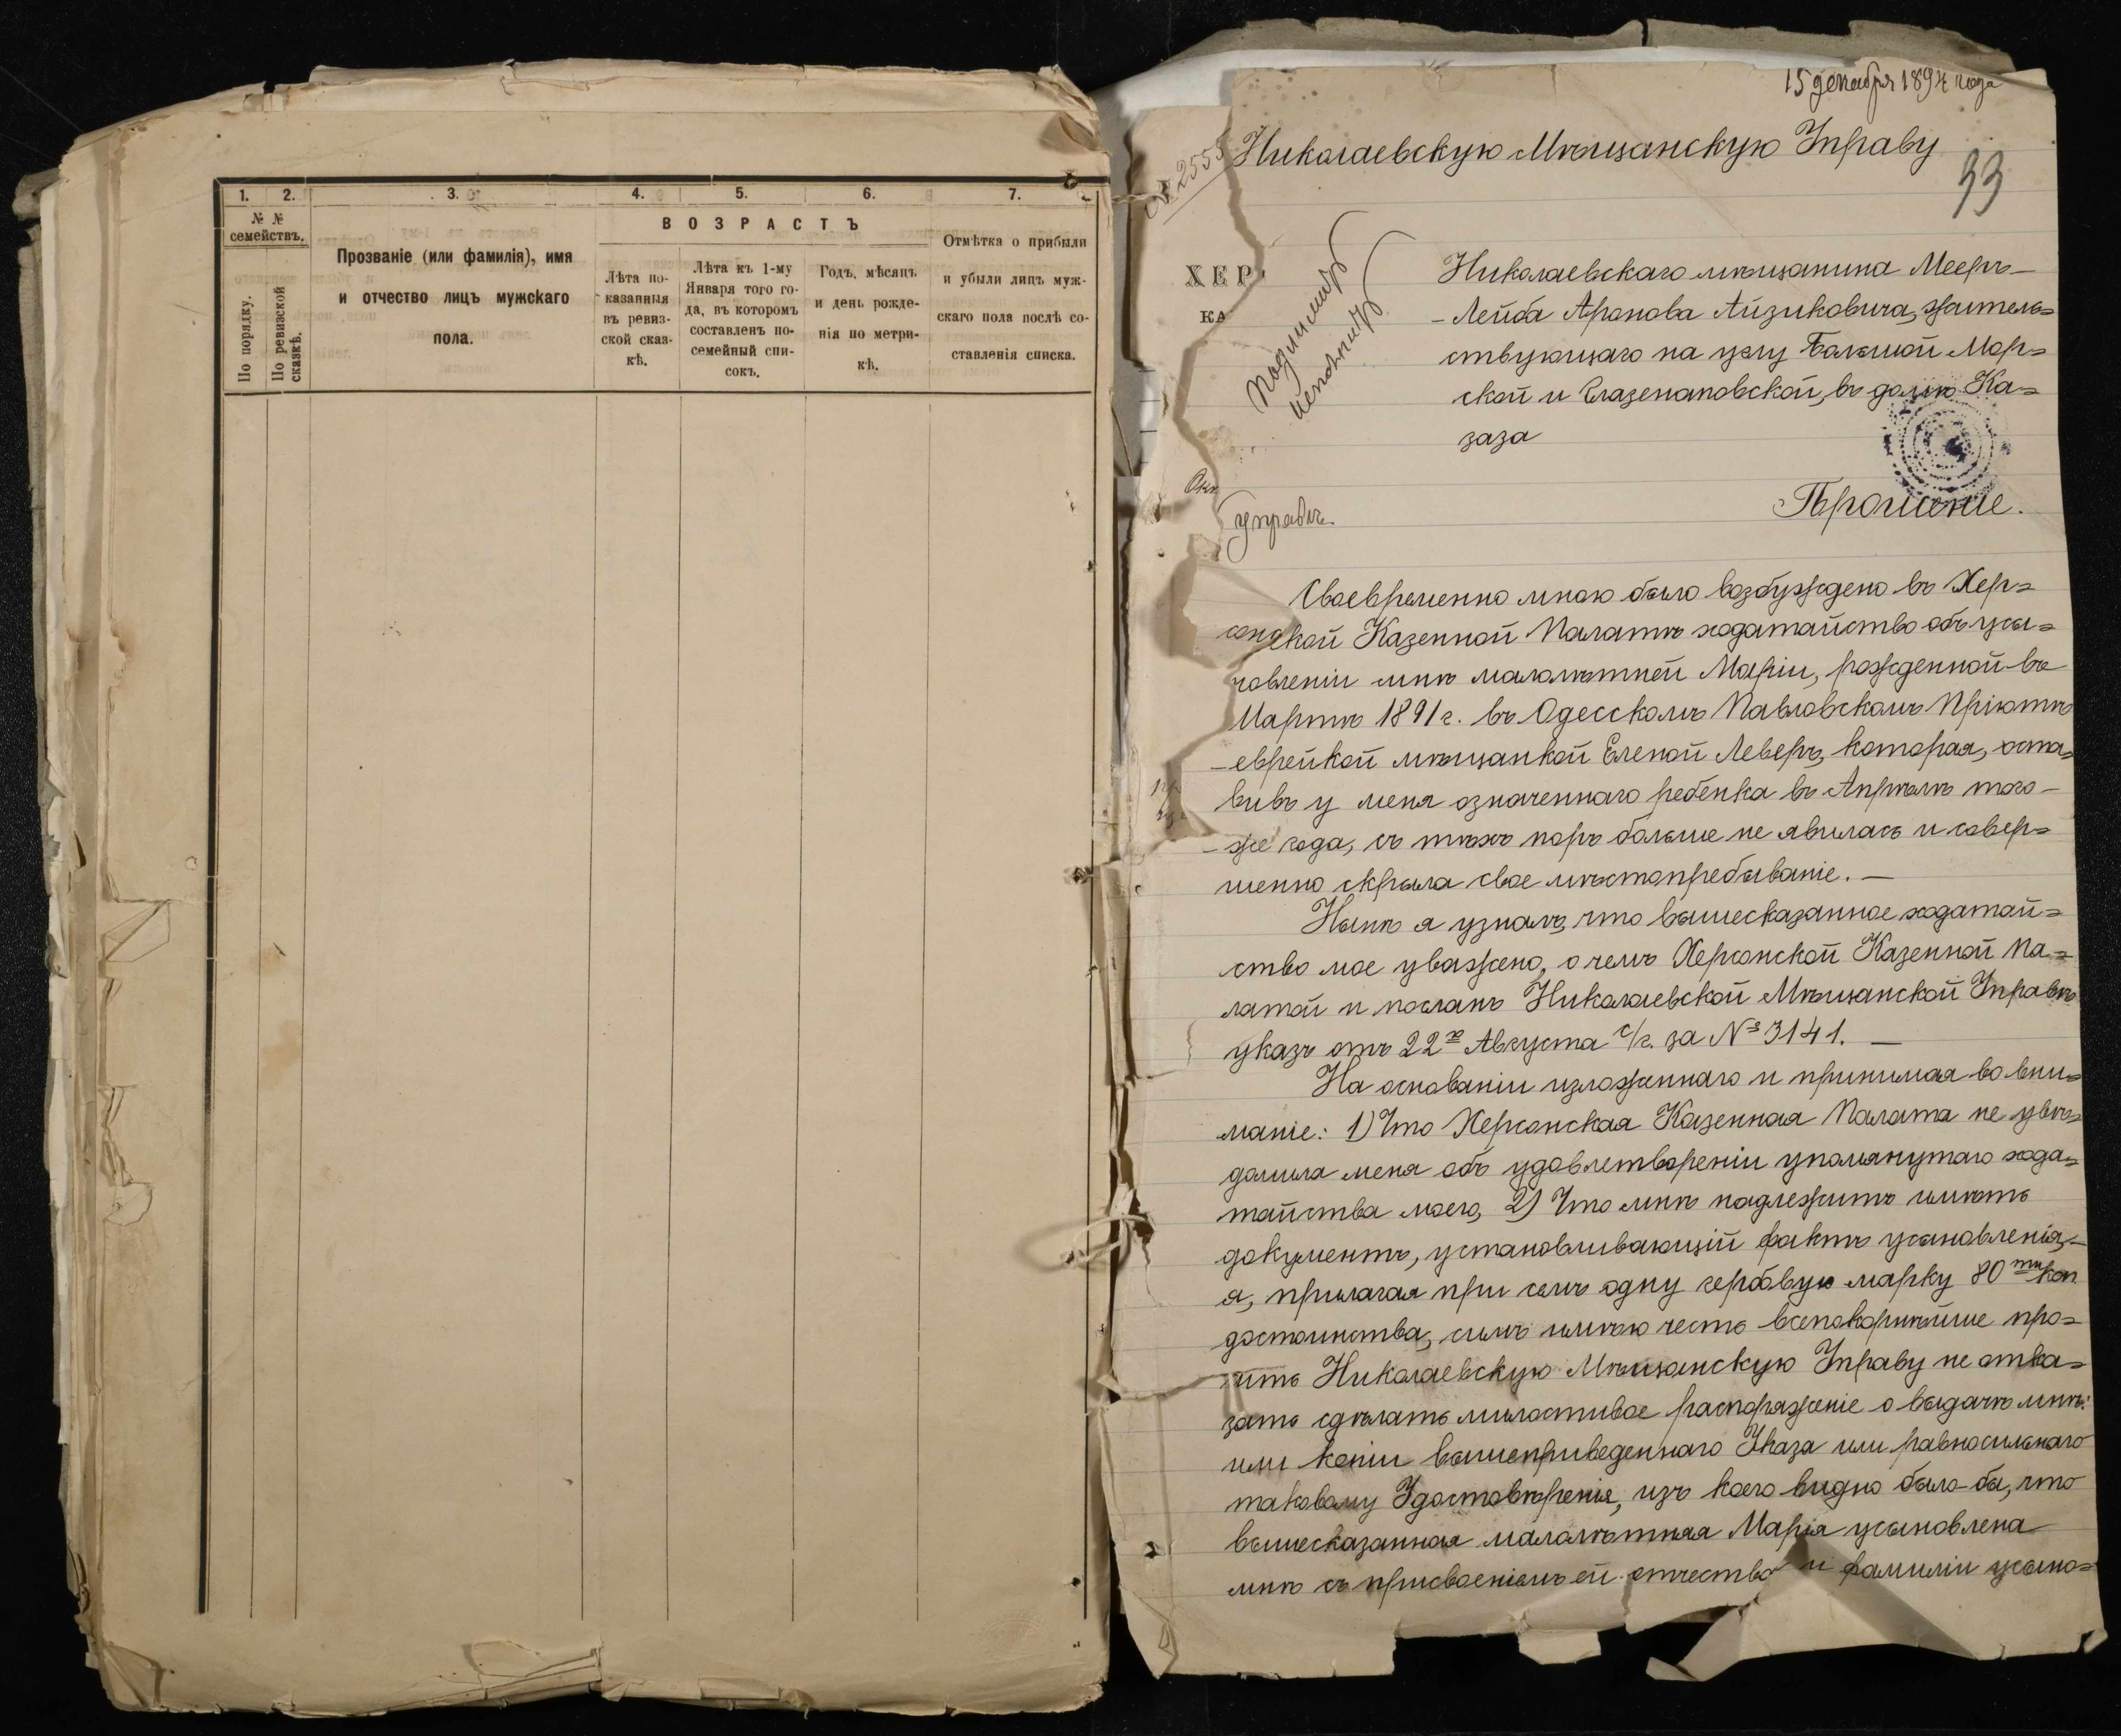 1.
2.
3.
4.
5.
6.
7.
№ №
семействъ.
По порядку.
По ревизской
сказкѣ.
Прозваніе (или фамилія), имя
и отчество лицъ мужскаго
пола.
ВОЗРАСТЪ
Лѣта по-
казанныя
въ ревиз-
ской сказ-
кѣ.
Лѣта къ 1-му
Января того го-
да, въ которомъ
составленъ по-
семейный спи-
сокъ.
Годъ, мѣсяцъ
и день рожде-
нія по метри-
кѣ.
Отмѣтка о прибыли
и убыли лицъ муж-
скаго пола послѣ со-
ставленія списка.
15 декабря 1894 года
№ 2555
Николаевскую Мѣщанскую Управу
33
ХЕР
КА
Николаевскаго мѣщанина Мееръ-
-Лейба Аронова Айзиковича, житель=
ствующаго на углу Большой Мор=
ской и Глазенаповской, въ домѣ Ка=
заза
Прошеніе.
Своевременно мною было возбуждено въ Хер=
сонской Казенной Палатѣ ходатайство объ усы=
новленіи мнѣ малолѣтней Маріи, рожденной въ
Мартѣ 1891 г. въ Одесскомъ Павловскомъ Пріютѣ
-еврейкой мѣщанкой Еленой Леверъ, которая, оста=
вивъ у меня означеннаго ребенка въ Апрѣлѣ того-
-же года, съ тѣхъ поръ больше не явилась и совер=
шенно скрыла свое мѣстопребываніе. —
Нынѣ я узналъ, что вышесказанное ходатай=
ство мое уважено, о чемъ Херсонской Казенной Па=
латой и посланъ Николаевской Мѣщанской Управѣ
указъ отъ 22го Августа с/г. за № 3141. —
На основаніи изложеннаго и принимая во вни=
маніе: 1) Что Херсонская Казенная Палата не увѣ=
домила меня объ удовлетвореніи упомянутаго хода=
тайства моего, 2) Что мнѣ надлежитъ имѣть
документъ, установливающій фактъ усыновленія, —
я, прилагая при семъ одну гербовую марку 80ти коп
достоинства, симъ имѣю честь всепокорнѣйше про=
сить Николаевскую Мѣщанскую Управу не отка=
зать сдѣлать милостивое распоряженіе о выдачѣ мнѣ:
или копіи вышеприведеннаго Указа или равносильнаго
таковому Удостовѣренія, изъ коего видно было-бы, что
вышесказанная малолѣтняя Марія усыновлена
мнѣ съ присвоеніемъ ей отчества и фамиліи усыно=